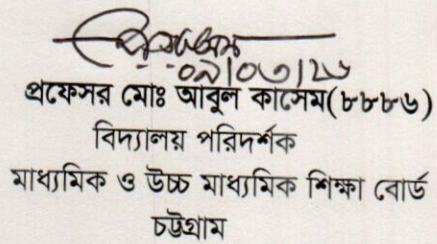 ০৯/০৩/২৬
প্রফেসর মোঃ আবুল কাসেম(৮৮৮৬)
বিদ্যালয় পরিদর্শক
মাধ্যমিক ও উচ্চ মাধ্যমিক শিক্ষা বোর্ড
চট্টগ্রাম